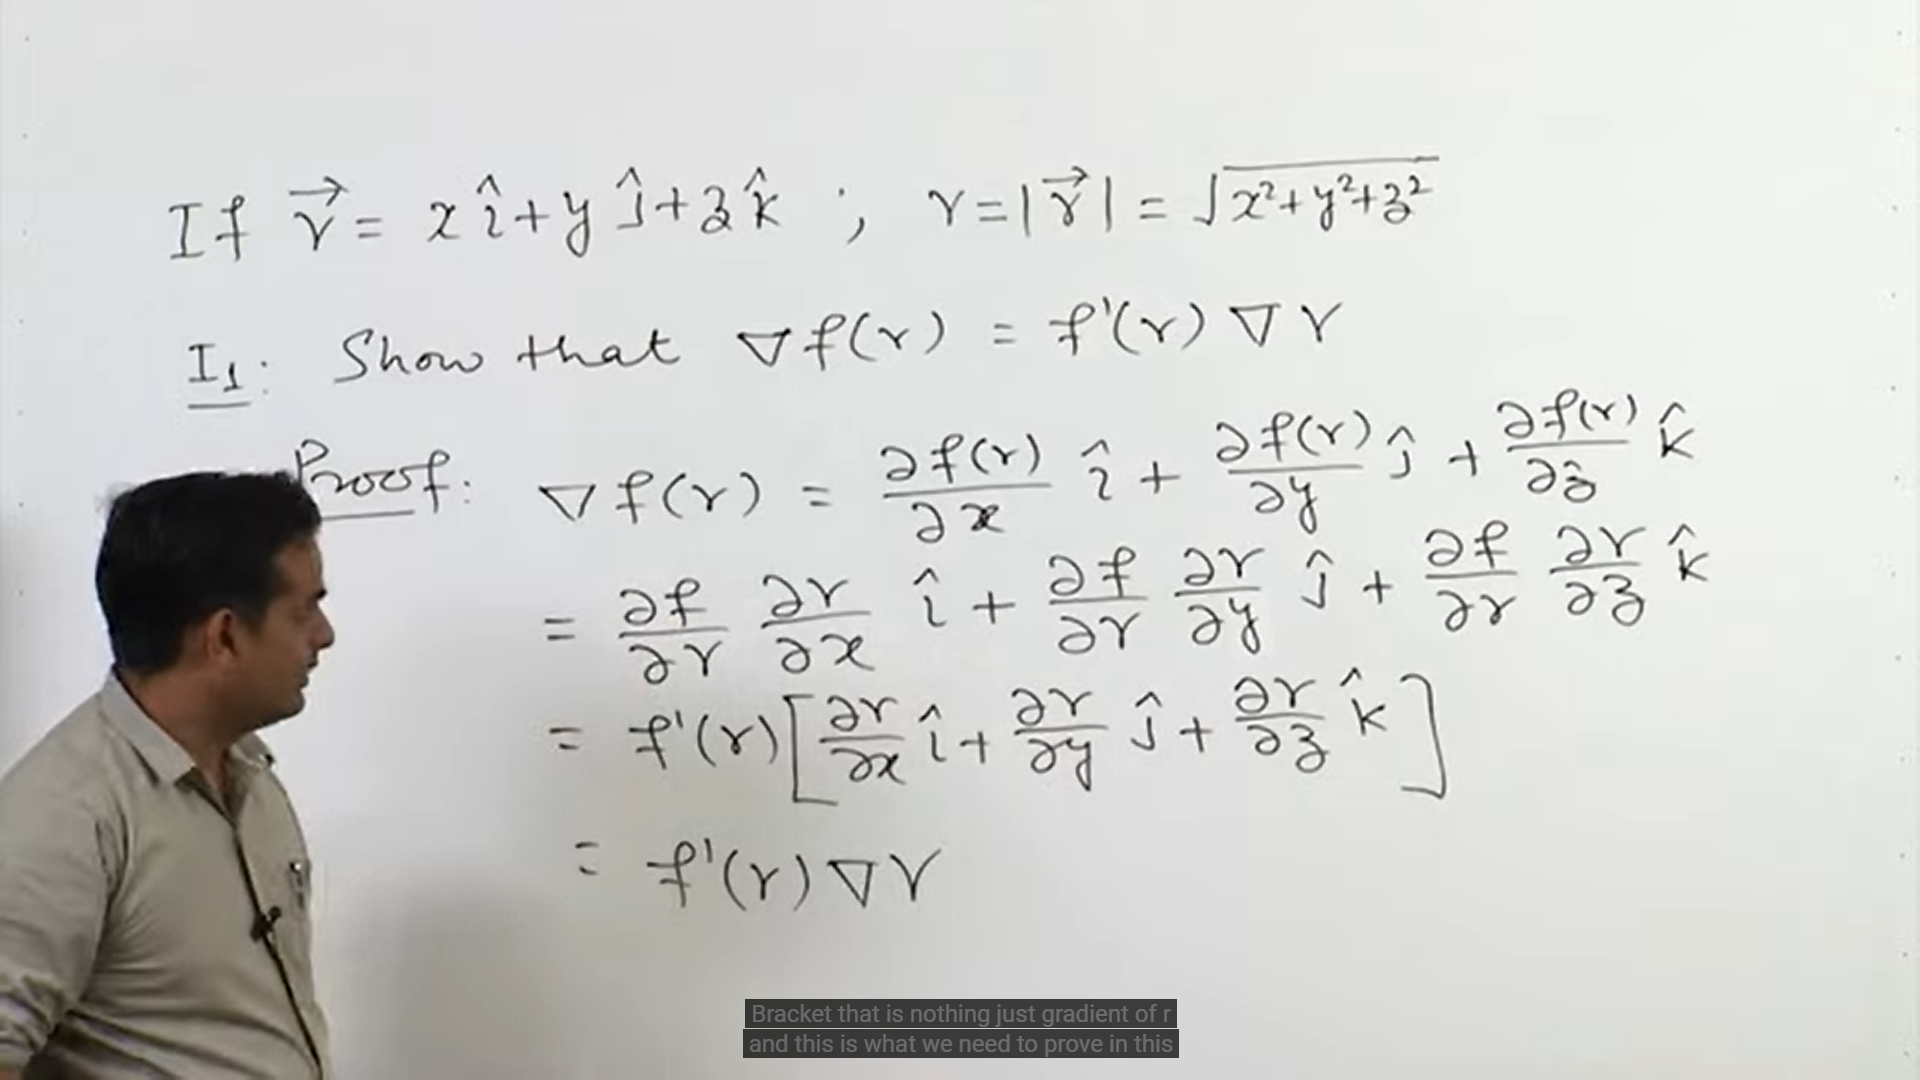 If r⃗ = x î + y ĵ + z k̂ ; r = |r⃗| = √x²+y²+z²
I₁: Show that ∇f(r) = f'(r) ∇r
Proof: ∇f(r) = ∂f(r)/∂x î + ∂f(r)/∂y ĵ + ∂f(r)/∂z k̂
= ∂f/∂r ∂r/∂x î + ∂f/∂r ∂r/∂y ĵ + ∂f/∂r ∂r/∂z k̂
= f'(r) [∂r/∂x î + ∂r/∂y ĵ + ∂r/∂z k̂]
= f'(r) ∇r
Bracket that is nothing just gradient of r
and this is what we need to prove in this